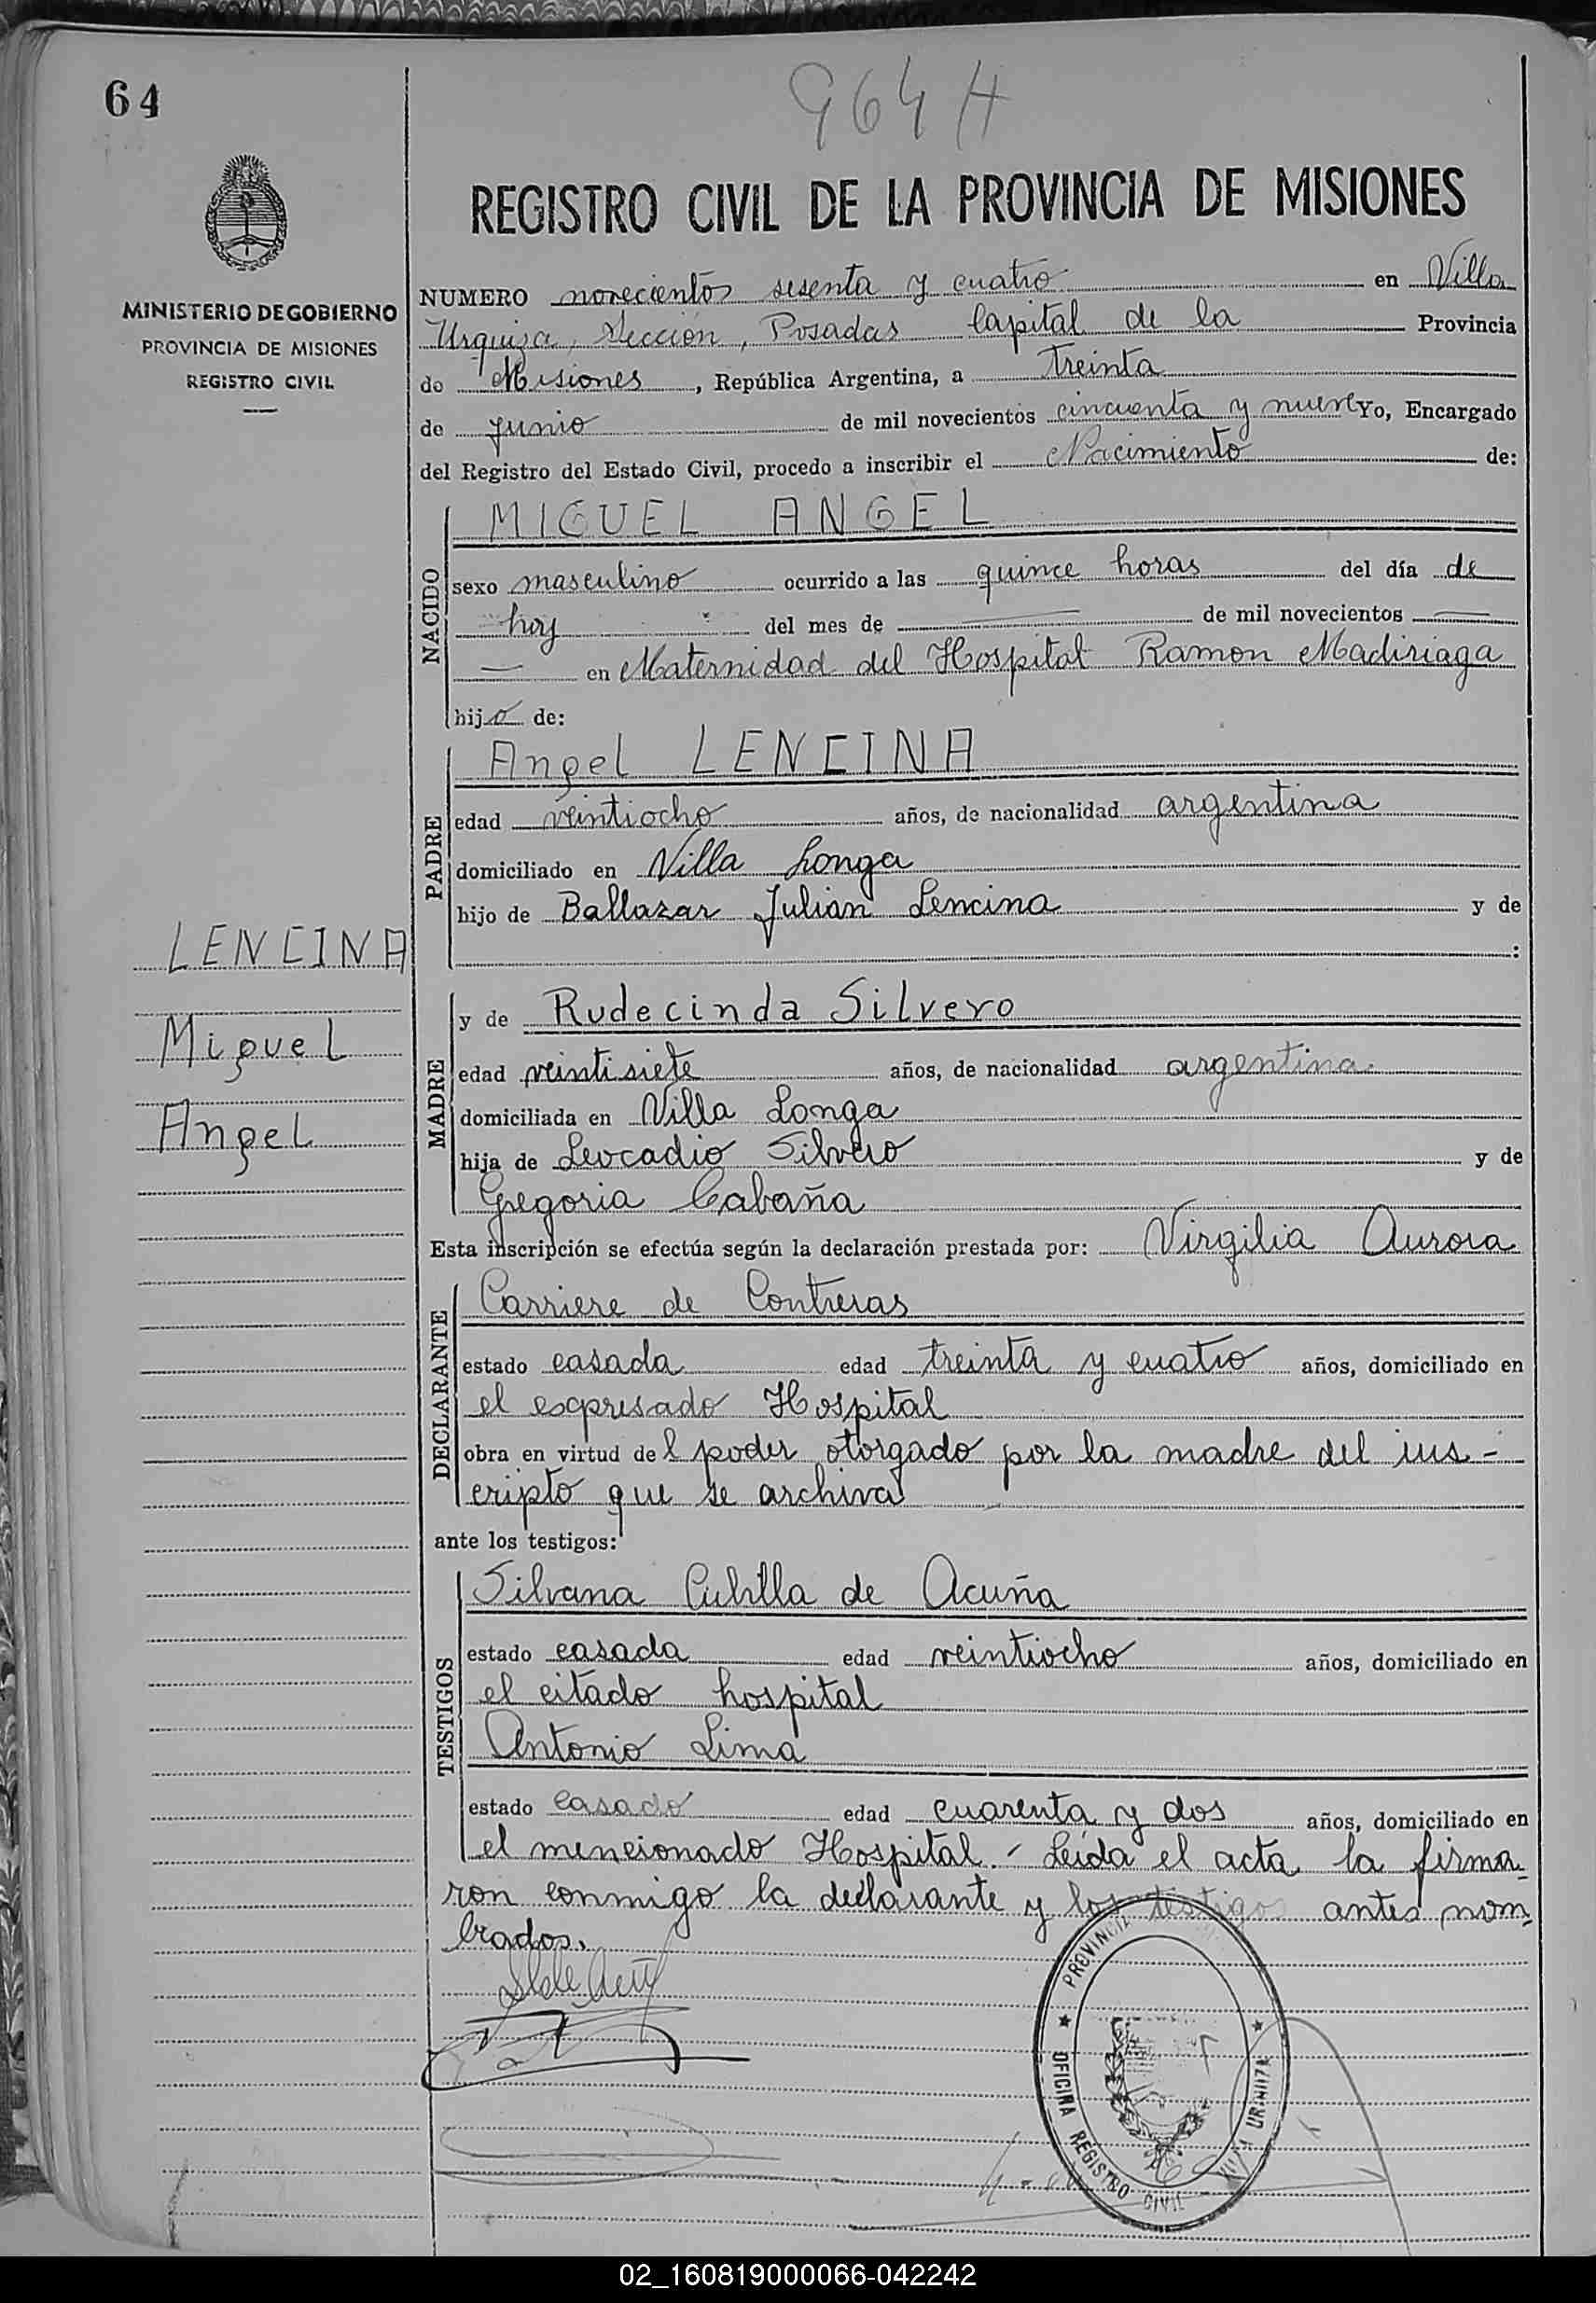 64
964 H
REGISTRO CIVIL DE LA PROVINCIA DE MISIONES
MINISTERIO DE GOBIERNO
PROVINCIA DE MISIONES
REGISTRO CIVIL
NUMERO novecientos sesenta y cuatro en Villa
Urquiza, Sección, Posadas Capital de la Provincia
de Misiones, República Argentina, a treinta
de Junio de mil novecientos cincuenta y nueve Yo, Encargado
del Registro del Estado Civil, procedo a inscribir el Nacimiento de:
NACIDO
MIGUEL ANGEL
sexo masculino ocurrido a las quince horas del día de
hoy del mes de — de mil novecientos —
— en Maternidad del Hospital Ramon Madiriaga
hijo de:
PADRE
Angel LENCINA
edad veintiocho años, de nacionalidad argentina
domiciliado en Villa Longa
hijo de Baltazar Julian Lencina y de
:
LENCINA
Miguel
Angel
MADRE
y de Rudecinda Silvero
edad veintisiete años, de nacionalidad argentina
domiciliada en Villa Longa
hija de Leocadio Silvero y de
Gregoria Cabaña
Esta inscripción se efectúa según la declaración prestada por: Virgilia Aurora
DECLARANTE
Carriere de Contreras
estado casada edad treinta y cuatro años, domiciliado en
el expresado Hospital
obra en virtud del poder otorgado por la madre del ins-
cripto que se archiva
ante los testigos:
TESTIGOS
Silvana Cubilla de Acuña
estado casada edad veintiocho años, domiciliado en
el citado hospital
Antonio Lima
estado casado edad cuarenta y dos años, domiciliado en
el mencionado Hospital.- Leída el acta la firma
ron conmigo la declarante y los testigos antes nom
brados.
PROVINCIA
OFICINA REGISTRO CIVIL
02_160819000066-042242